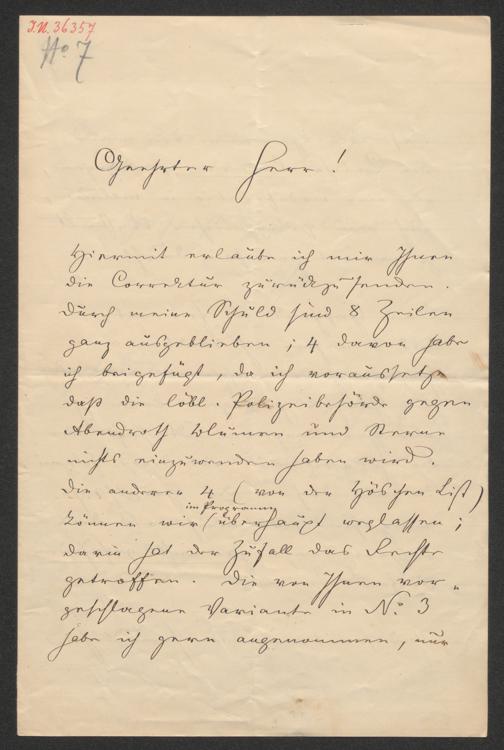 I.N. 36357
No 7
Geehrter Herr!
Hiermit erlaube ich mir Ihnen
die Correktur zurückzusenden.
Durch meine Schuld sind 8 Zeilen
ganz ausgeblieben; 4 davon habe
ich beigefügt, da ich voraussetze
daß die löbl. Polizeibehörde gegen
Abendroth Blumen und Sterne
nichts einzuwenden haben wird.
Die anderen 4 (von der Höschen List)
im Programm
können wir überhaupt weglassen;
darin hat der Zufall das Rechte
getroffen. Die von Ihnen vor-
geschlagene Variante in No. 3
habe ich gern angenommen, nur